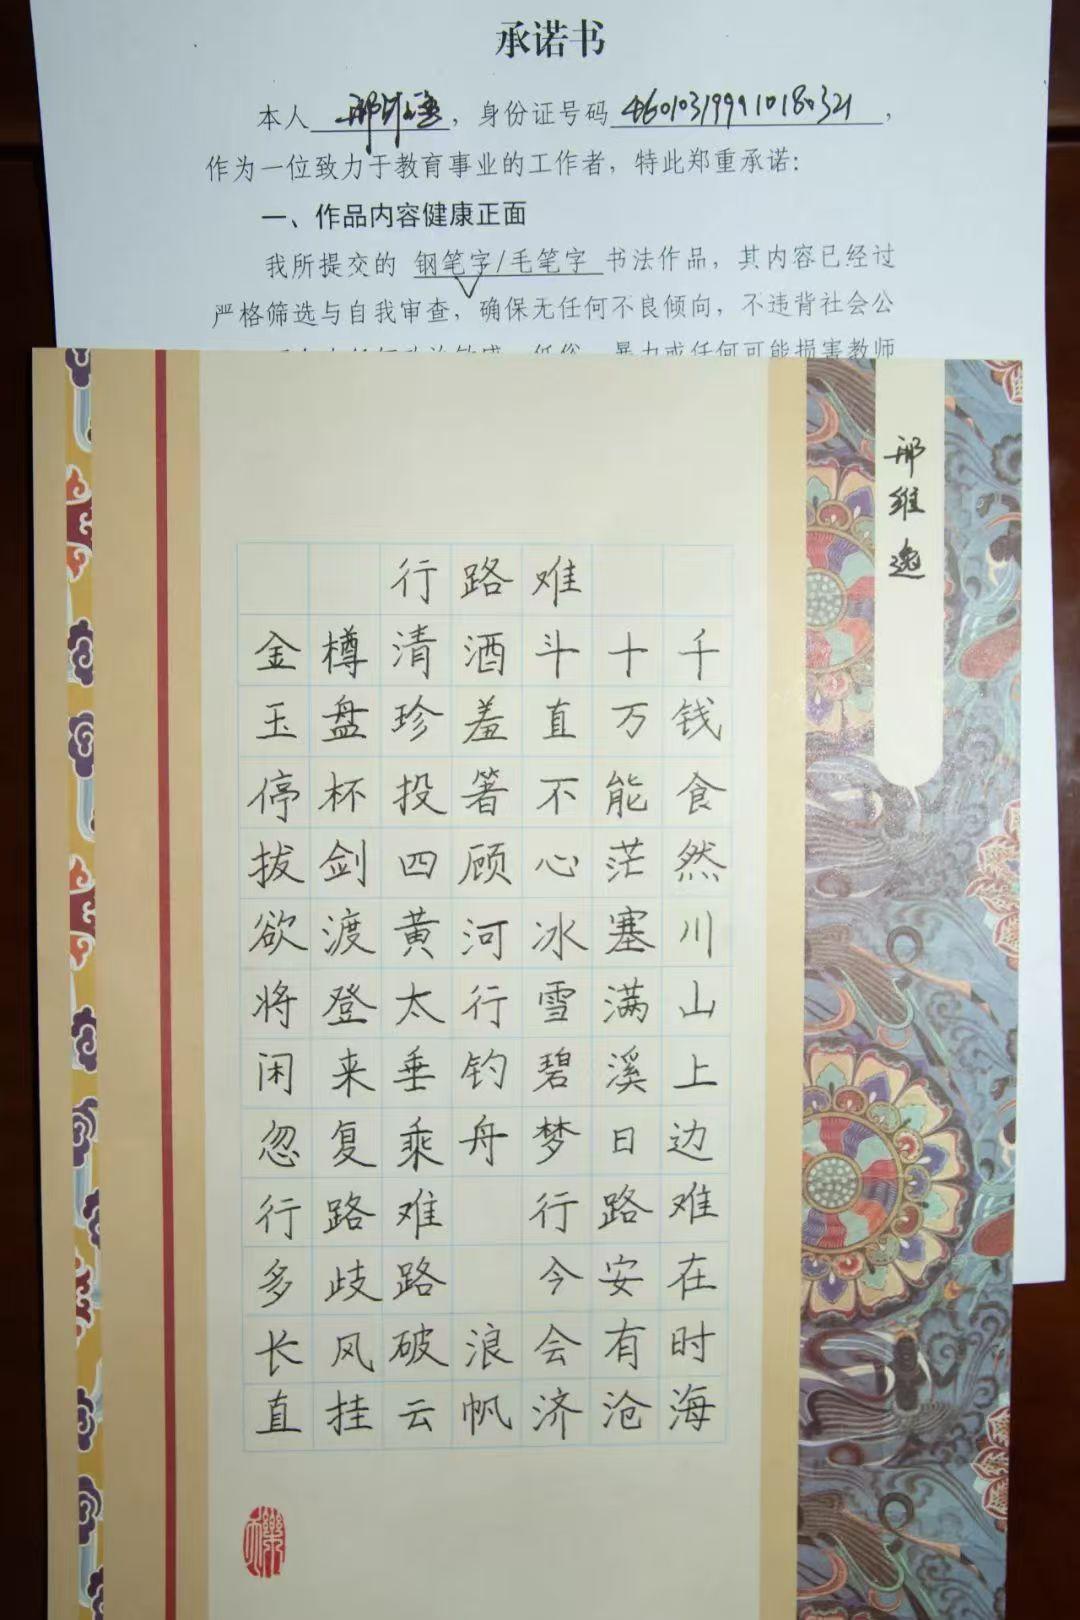 承诺书
本人邢维逸，身份证号码460103199910180321，
作为一位致力于教育事业的工作者，特此郑重承诺：
一、作品内容健康正面
我所提交的 钢笔字/毛笔字 书法作品，其内容已经过
严格筛选与自我审查，确保无任何不良倾向，不违背社会公
邢维逸
行路难
金樽清酒斗十千
玉盘珍羞直万钱
停杯投箸不能食
拔剑四顾心茫然
欲渡黄河冰塞川
将登太行雪满山
闲来垂钓碧溪上
忽复乘舟梦日边
行路难 行路难
多歧路 今安在
长风破浪会有时
直挂云帆济沧海